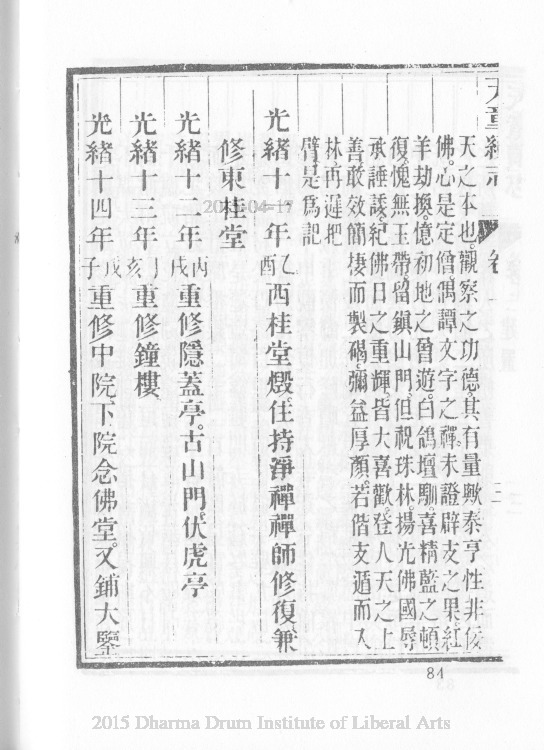 天童續志
卷
三
天之本也。觀察之功德。其有量歟。泰亨性非佞
佛。心是定僧。偶譚文字之禪。未證辟支之果。紅
羊劫換。憶初地之曾遊。白鴿壇馴。喜精藍之頓
復。愧無玉帶。留鎮山門。但祝珠林。揚光佛國。辱
承諈諉。紀佛日之重輝。皆大喜歡。登人天之上
善。敢效簡棲而製碣。彌益厚顏。若偕支遁而入
林。再遲把
臂。是為記
光緒十一年乙酉西桂堂燬。住持淨禪禪師修復。兼
修東桂堂
光緒十二年丙戌重修隱蓋亭。古山門。伏虎亭
光緒十三年丁亥重修鐘樓
光緒十四年戊子重修中院。下院念佛堂。又鋪大鑒
84
2015-04-17
2015 Dharma Drum Institute of Liberal Arts